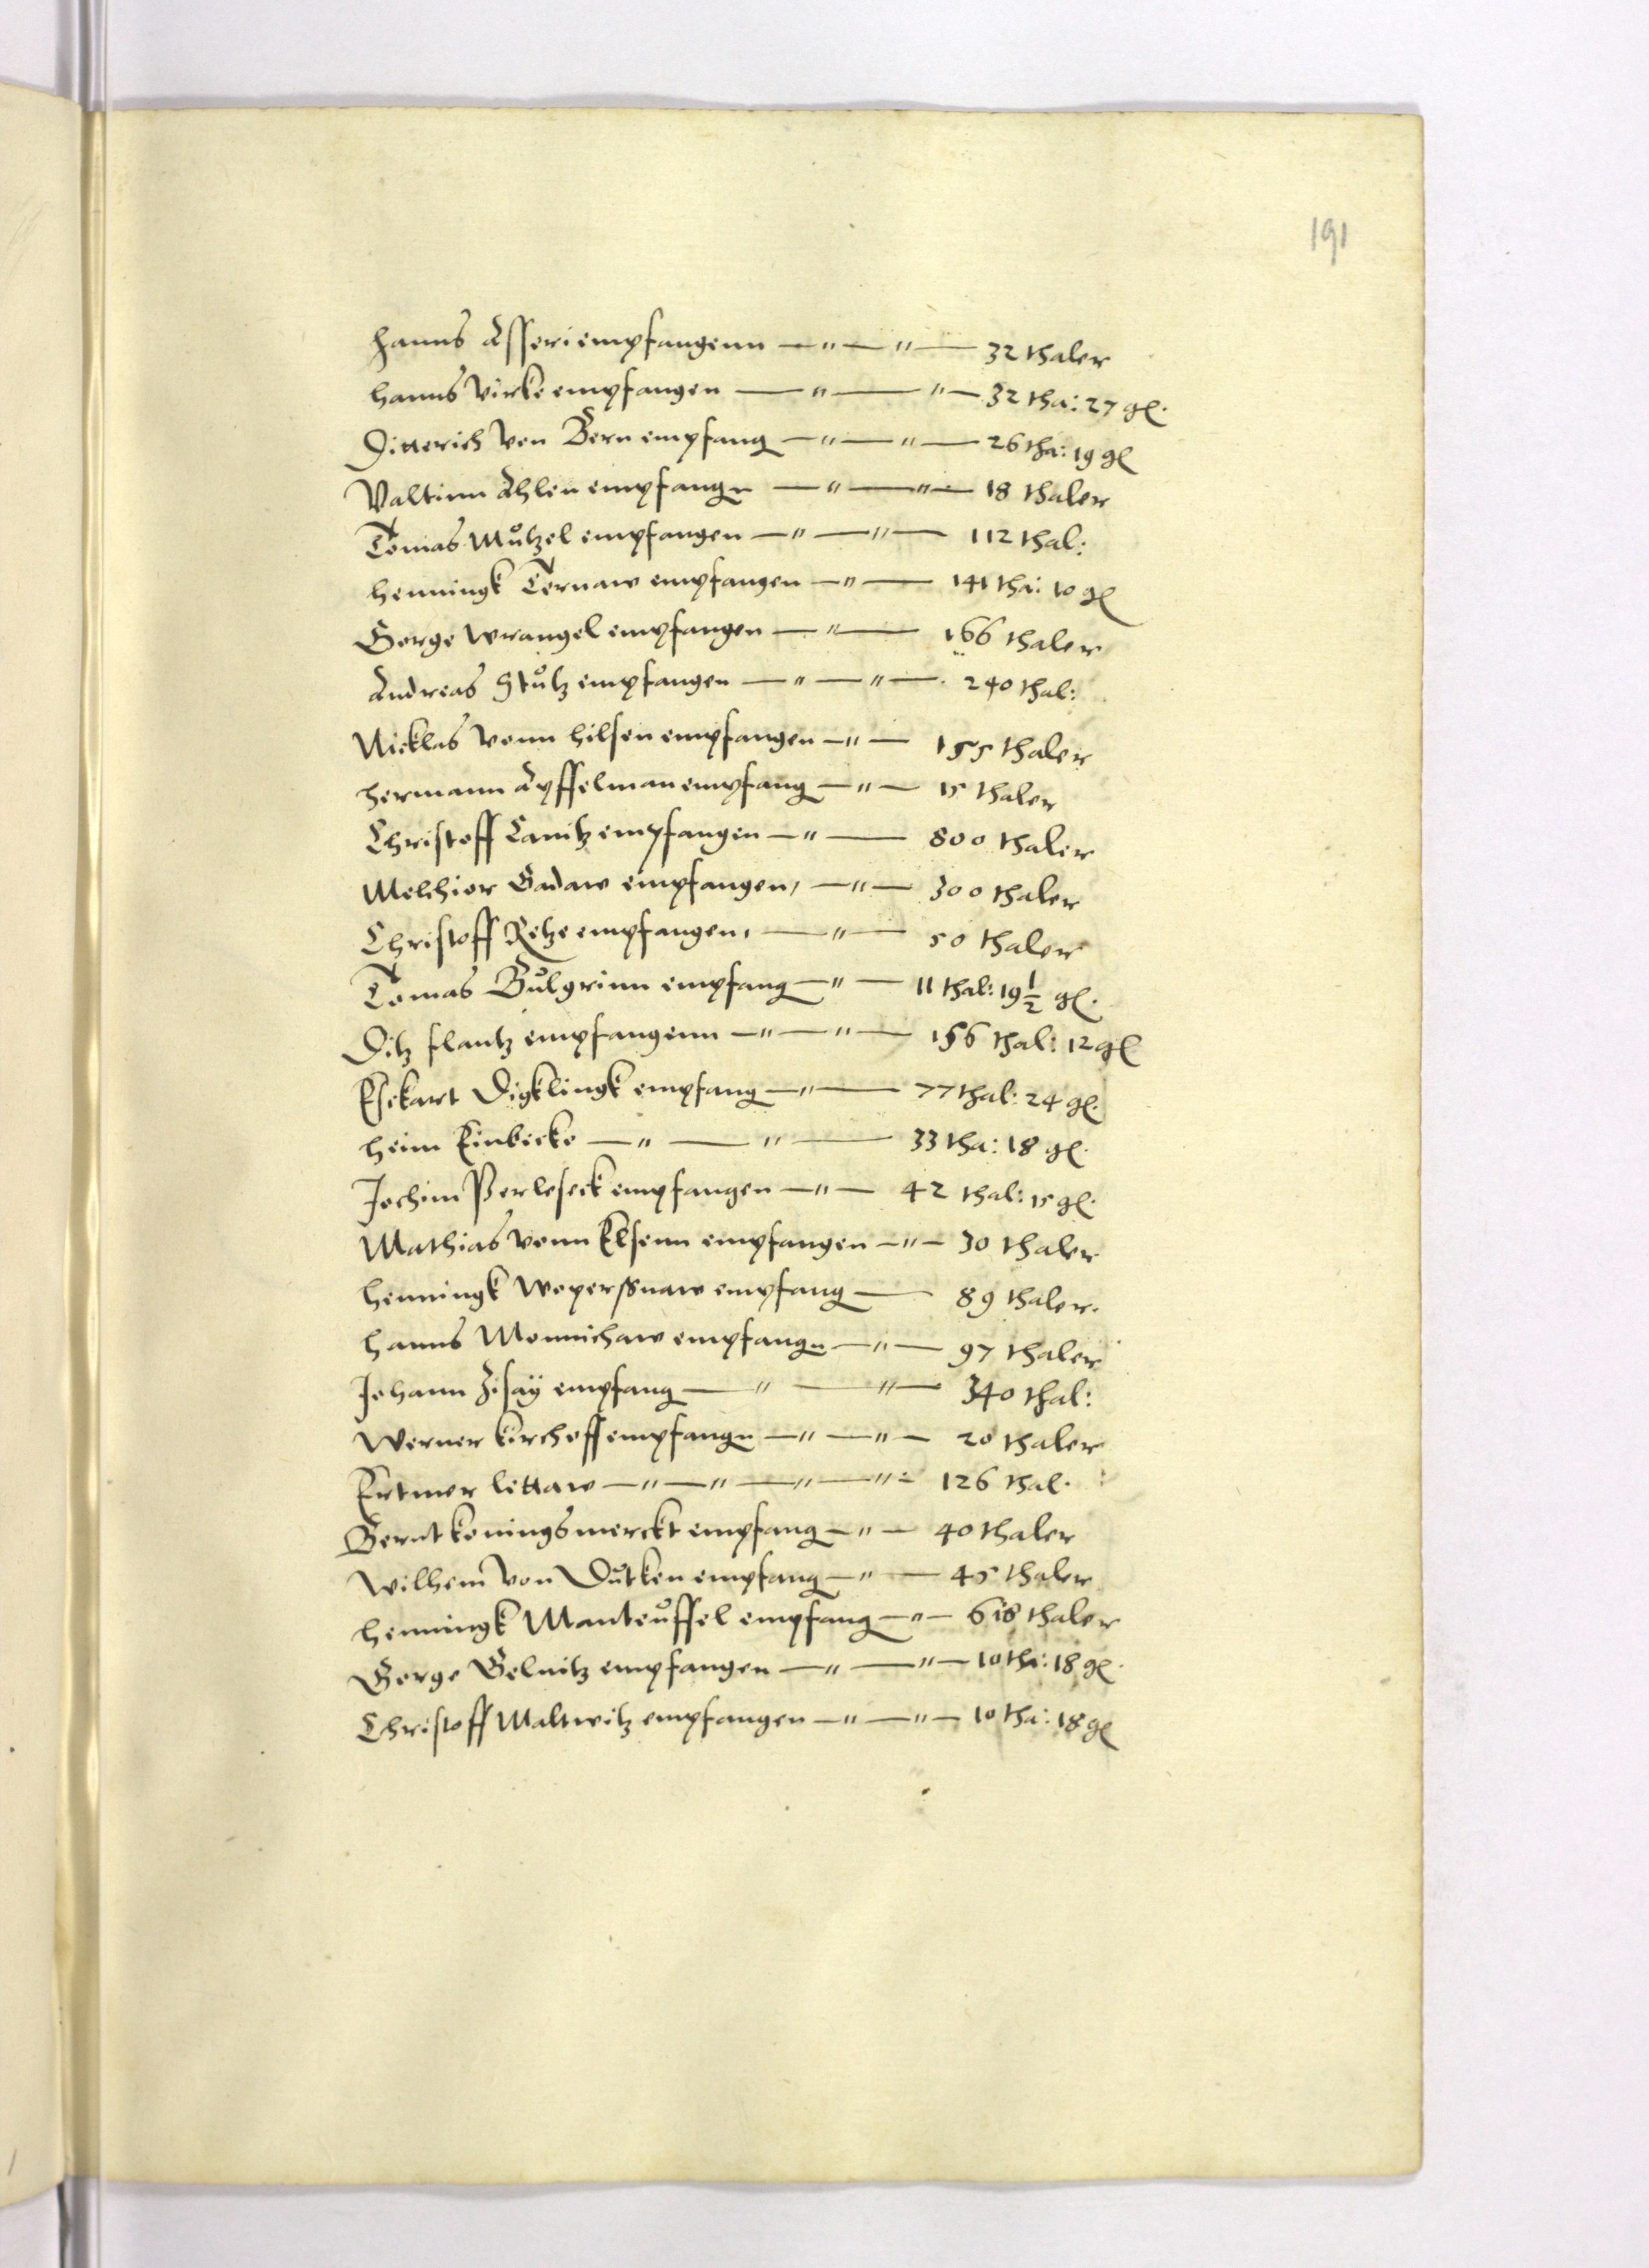 191
Hanns Asseri empfangenn —"—"— 32 thaler
hanns Virke empfangen —"—"— 32 tha: 27 gl.
Ditterich von Bern empfang —"—"— 26 tha: 19 gl
Valtinn Ahlen empfangn —"—"— 18 thaler
Tomas Mützel empfangen —"—"— 112 thal:
henningk Ternaw empfangen —"— 141 tha: 10 gl
George Wrangel empfangen —"— 166 thaler
Andreas Stultz empfangen —"—"—. 240 thal:
Nicklas vonn hilsen empfangen —"— 155 thaler
hermann Aysselman empfang —"— 15 thaler
Christoff Canitz empfangen —"— 800 thaler
Melchior Gadaw empfangen, —"— 300 thaler
Christoff Retze empfangen, —"— 50 thaler
Tomas Bulgrinn empfang —"— 11 thal: 19 1/2 gl.
Ditz flantz empfangenn —"—"— 156 thal: 12 gl
Esekart Digklingk empfang —"— 77 thal: 24 gl.
heim Einbecke —"—"— 33 tha: 18 gl.
Jochim Perleseck empfangen —"— 42 thal: 15 gl.
Mathias vonn Elsenn empfangen —"— 30 thaler
henningk Woperßnaw empfang — 89 thaler.
hanns Monnichaw empfangn —"— 97 thaler
Johann Zisaÿ empfang —"—"— 340 thal:
Werner kirchoff empfangn —"—"— 20 thaler
Ertmer littaw —"—"—"—"— 126 thal.
Bernt koningsmerckt empfang —"— 40 thaler
Wilhem von Dutken empfang —"— 45 thaler
henningk Manteuffel empfang —"— 618 thaler
George Gelnitz empfangen —"—"— 10 tha: 18 gl.
Christoff Maltwitz empfangen —"—"— 10 tha: 18 gl